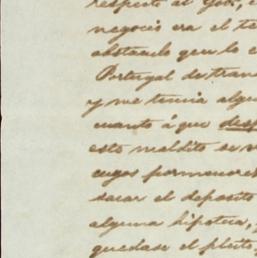 respecto al Gob,
negocio era el te
obstaculo que lo
Portugal de tran
y me tenia algu
cuanto á que desp
esto maldito se
cuyos pormenores
sacar el deposito
alguna hipoteca,
quedase el pleito,